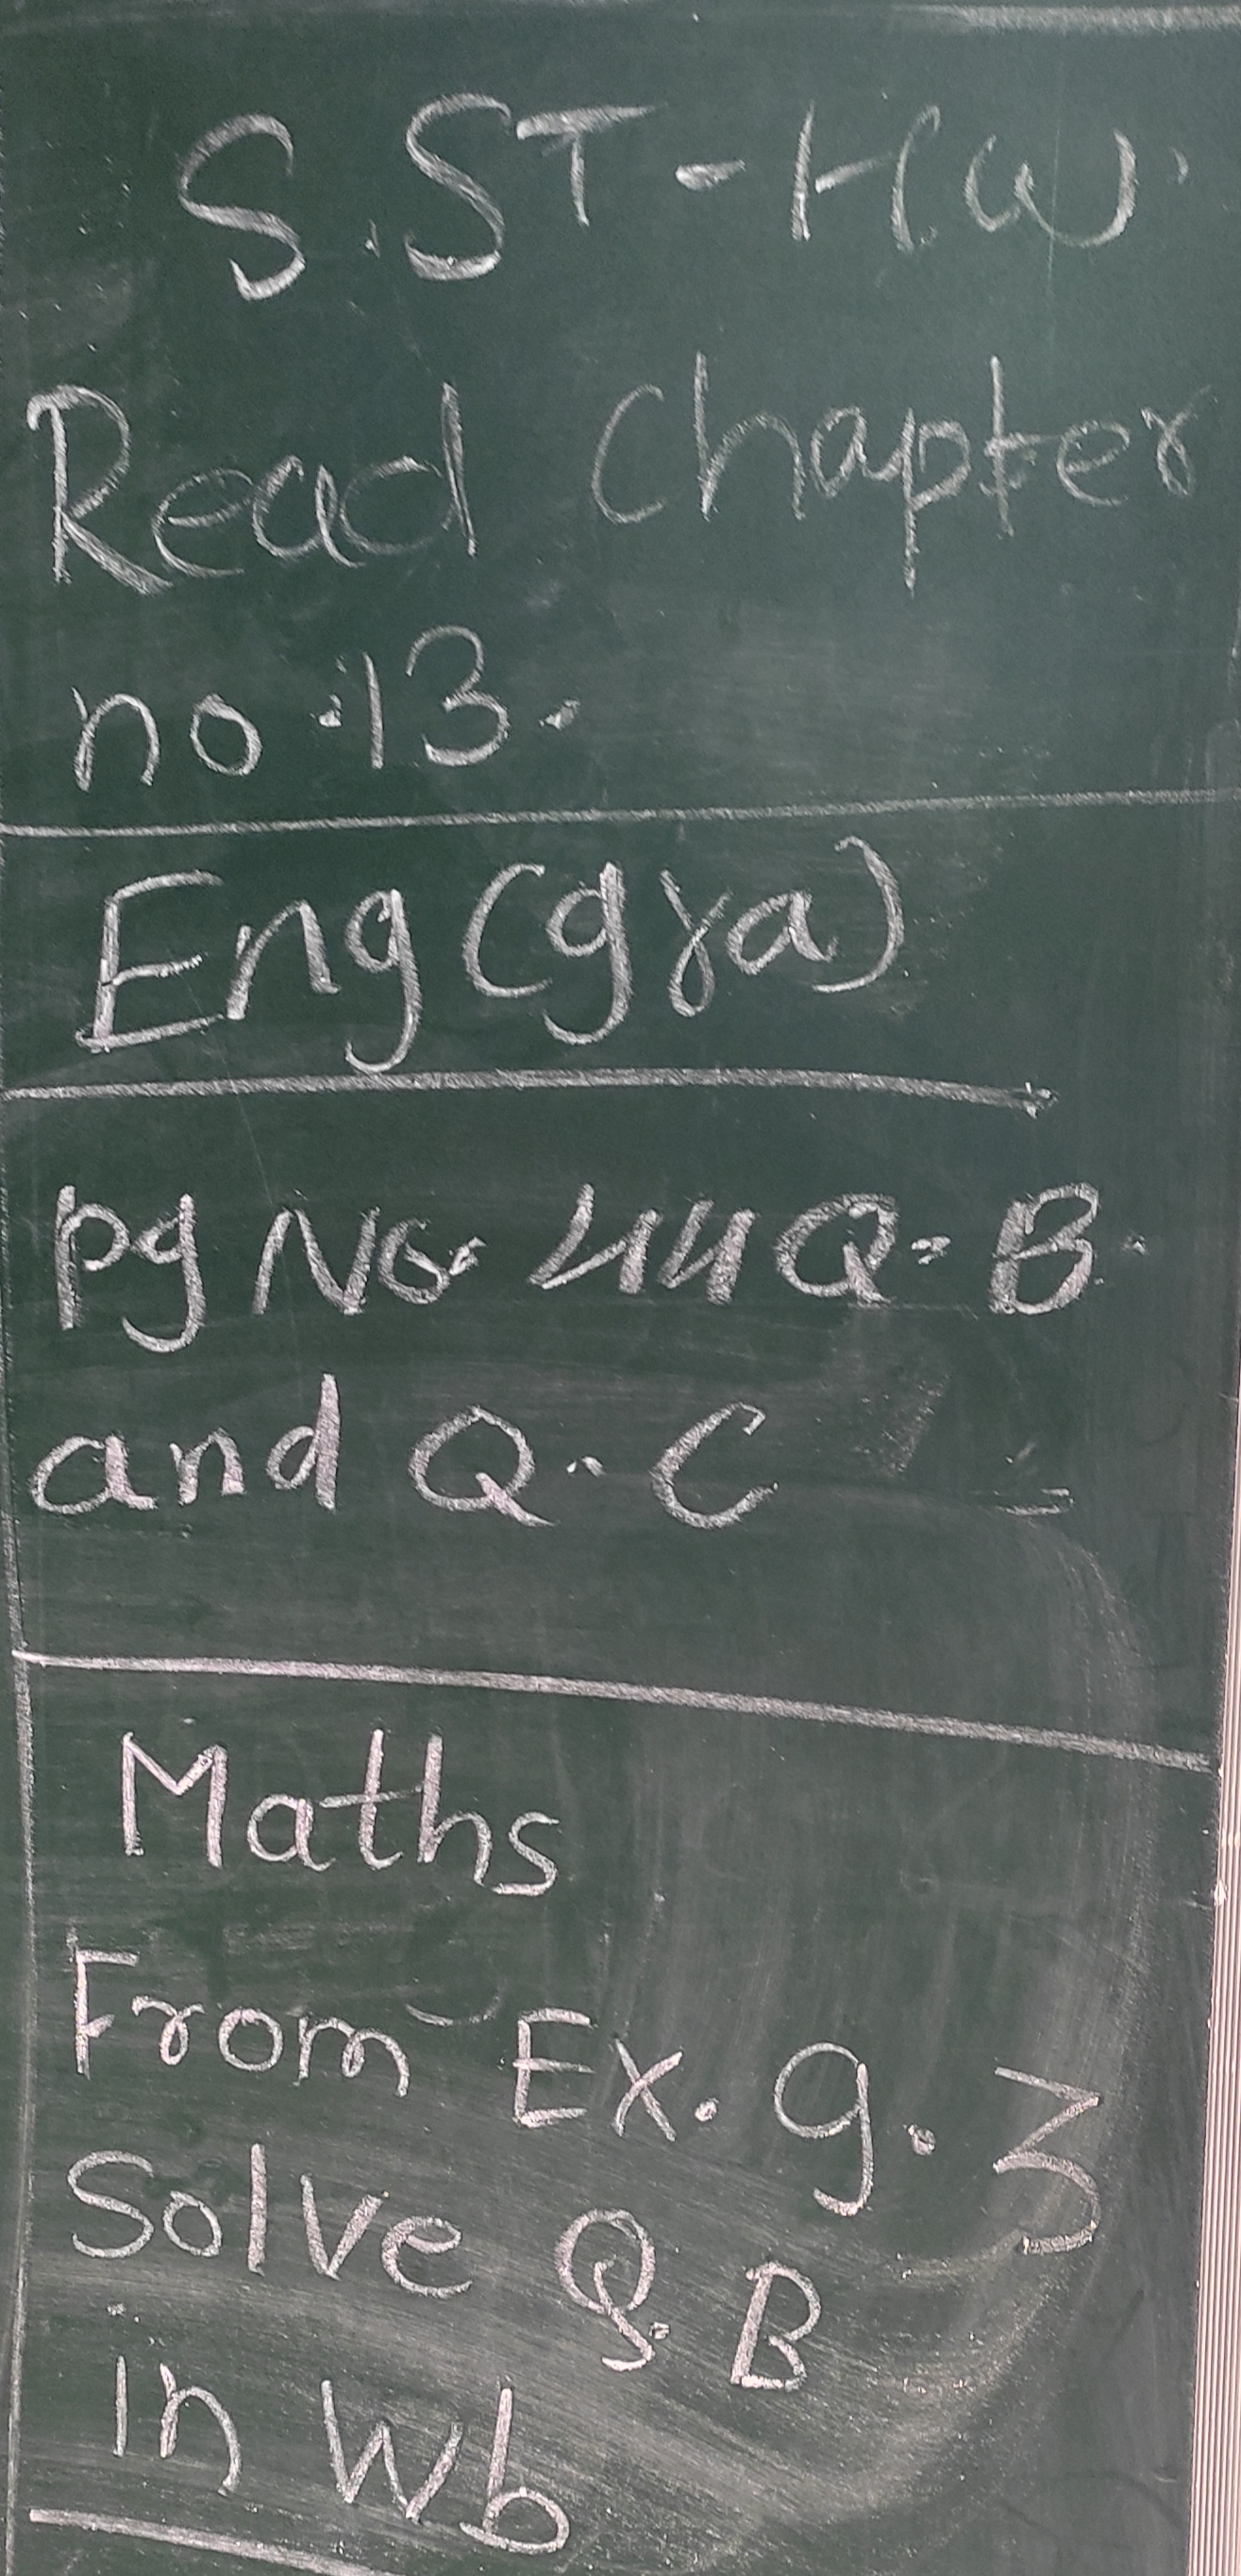 S.ST - H.W.
Read Chapter
no.13.
Eng (gra)
Pg No. 44 Q. B.
and Q. C
Maths
From Ex. 9.3
Solve Q. B
in Wb